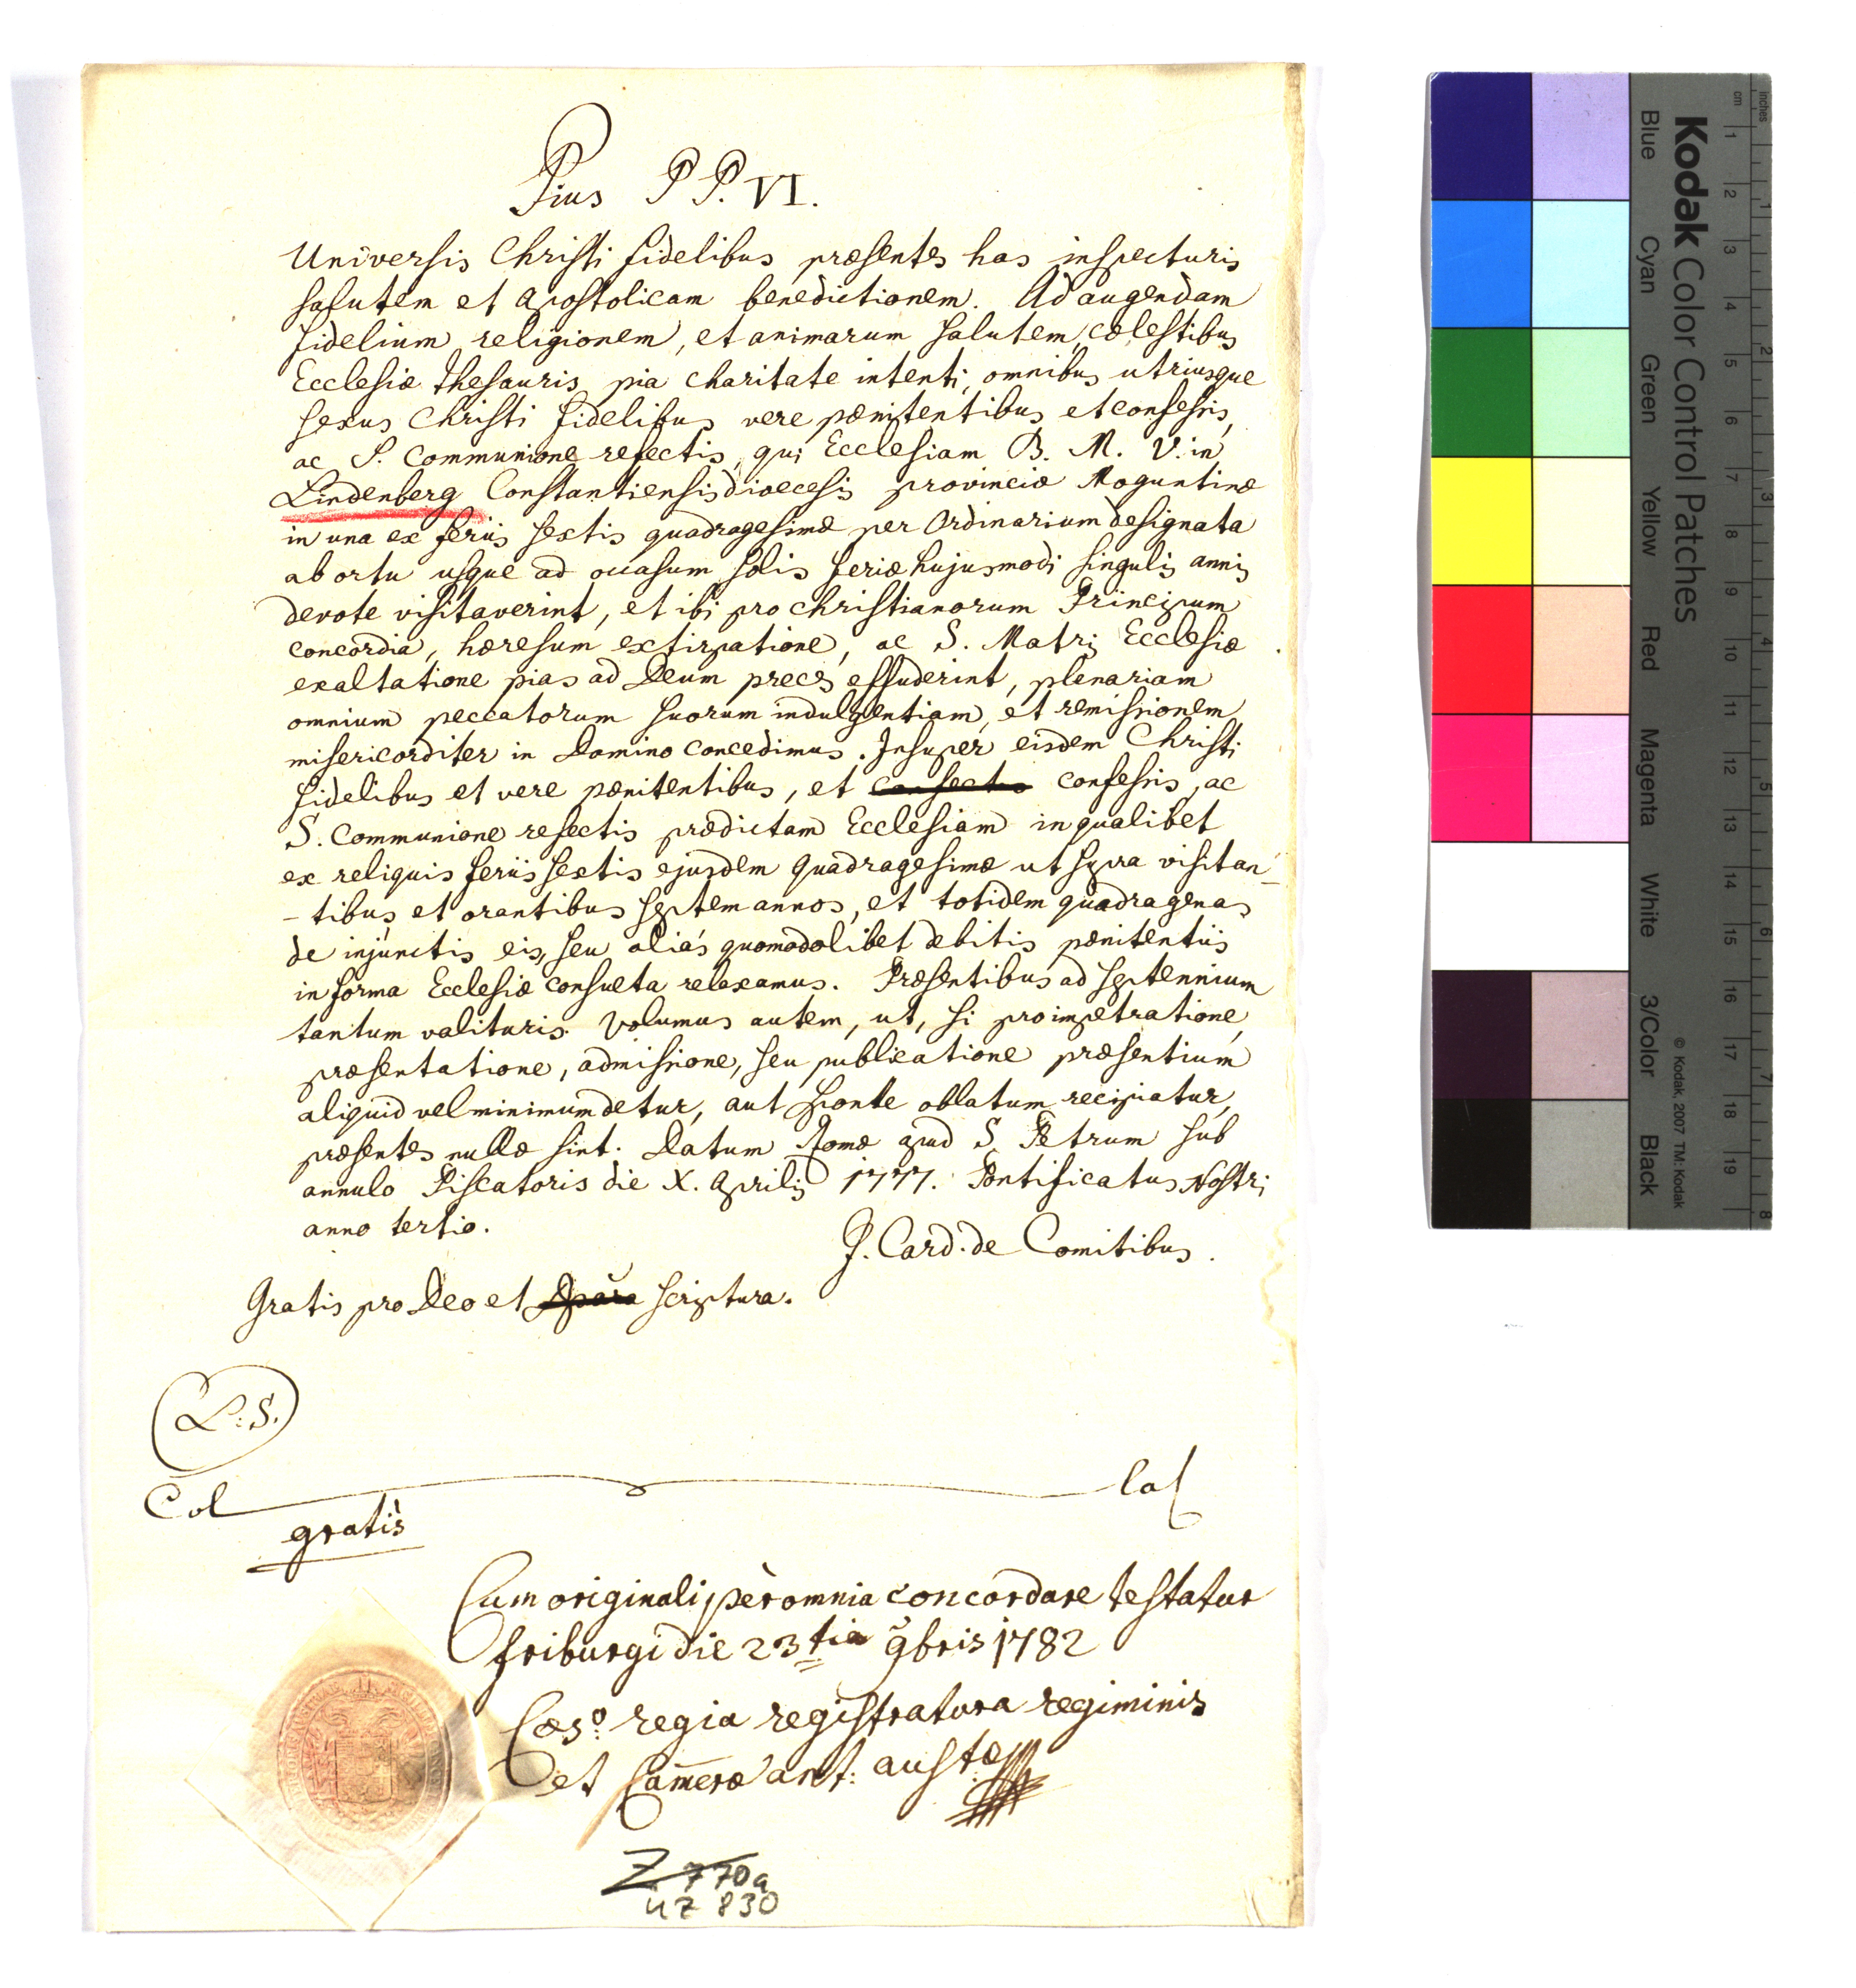 Pius P P. VI.
Universis Christi fidelibus præsentes has inspecturis
salutem et apostolicam benedictionem. Ad augendam
fidelium religionem, et animarum salutem, cœlestibus
Ecclesiæ thesauris pia charitate intenti, omnibus utriusque
sexus Christi fidelibus vere pænitentibus et confessis,
ac S. Communione refectis, qui Ecclesiam B. M. V. in
Lindenberg Constantiensis diœcesis provinciæ Moguntinæ
in una ex feriis sextis quadragesimæ per Ordinarium designata
ab ortu usque ad occasum solis feriæ hujusmodi singulis annis
devote visitaverint, et ibi pro christianorum Principum
concordia, hæresum extirpatione, ac S. Matris Ecclesiæ
exaltatione pias ad Deum preces effuderint, plenariam
omnium peccatorum suorum indulgentiam, et remissionem
misericorditer in Domino concedimus. Insuper eisdem Christi
fidelibus et vere pænitentibus, et confessis, ac
S. Communione refectis prædictam Ecclesiam in qualibet
ex reliquis feriis sextis ejusdem quadragesimæ ut supra visitan-
-tibus et orantibus septem annos, et totidem quadragenas
de injunctis eis, seu aliás quomodolibet debitis pænitentiis
in forma Ecclesiæ consueta relaxamus. Præsentibus ad septennium
tantum valituris. Volumus autem, ut, si pro impetratione,
præsentatione, admissione, seu publicatione præsentium
aliquid vel minimum detur, aut sponte oblatum recipiatur,
præsentes nullæ sint. Datum Romæ apud S. Petrum sub
annulo Piscatoris die X. Aprilis 1777. Pontificatus Nostri
anno tertio.
J. Card. de Comitibus.
Gratis pro Deo et scriptura.
L. S.
Col
gratis
Cum originali per omnia concordare testatur
friburgi die 23tia 9bris 1782
Cæso. regia registratura regiminis
et Cam̅eræ ant: aust:æ
Z 770a
UZ 830
Kodak Color Control Patches
© Kodak, 2007 TM: Kodak
Blue Cyan Green Yellow Red Magenta White 3/Color Black
cm 1 2 3 4 5 6 7 8 9 10 11 12 13 14 15 16 17 18 19
inches 1 2 3 4 5 6 7 8